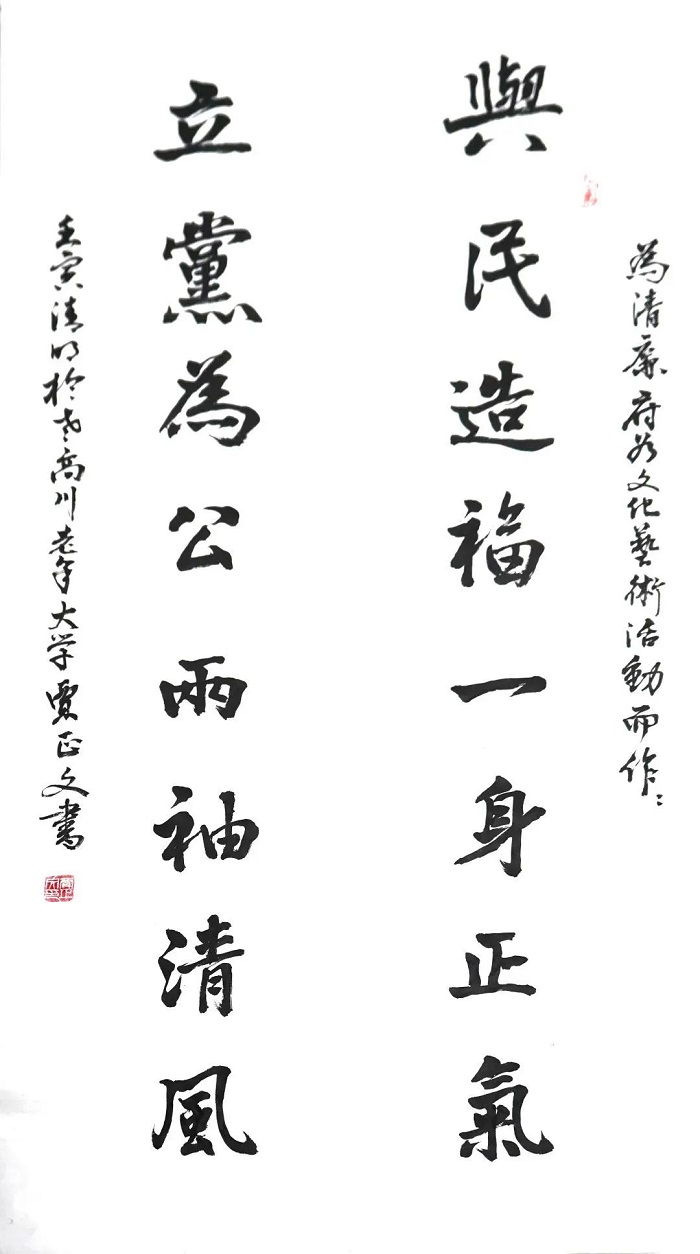 為清廉府谷文化藝術活動而作
與民造福一身正氣
立黨為公兩袖清風
壬寅清明於高川老年大学賈正文書